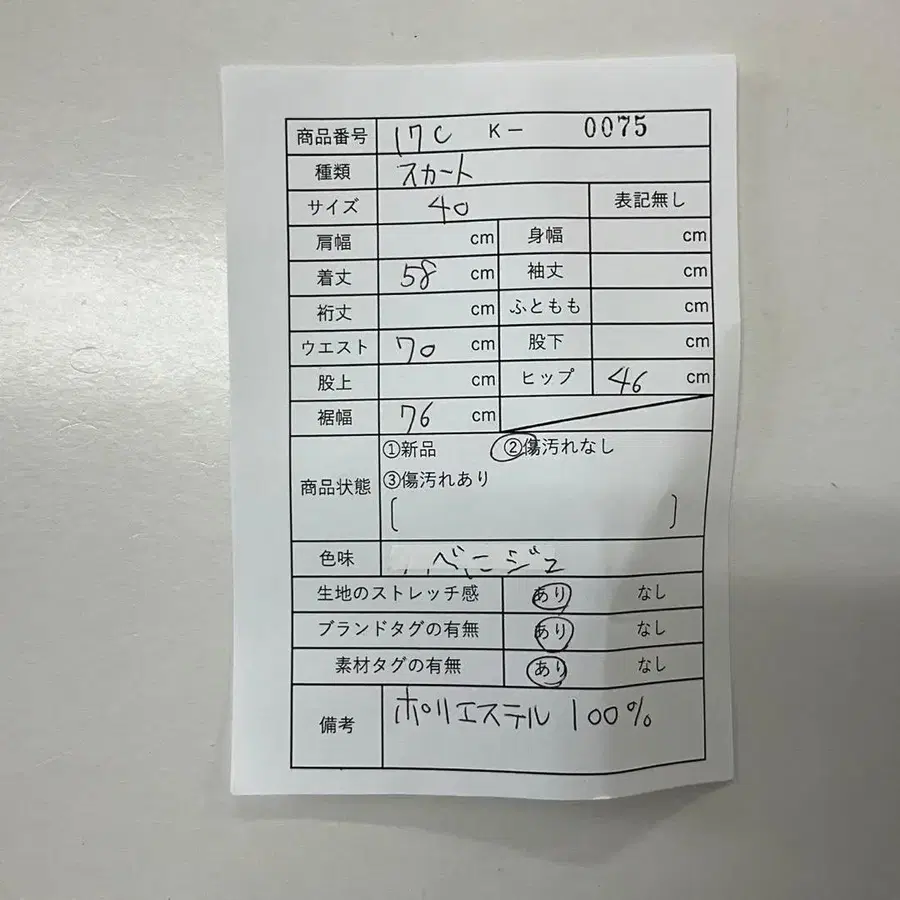 商品番号 17C K− 0075
種類 スカート
サイズ 40 表記無し
肩幅 cm 身幅 cm
着丈 58 cm 袖丈 cm
裄丈 cm ふともも cm
ウエスト 70 cm 股下 cm
股上 cm ヒップ 46 cm
裾幅 76 cm
①新品 ②傷汚れなし
商品状態 ③傷汚れあり
[ ]
色味
生地のストレッチ感 あり なし
ブランドタグの有無 あり なし
素材タグの有無 あり なし
備考 ポリエステル 100%